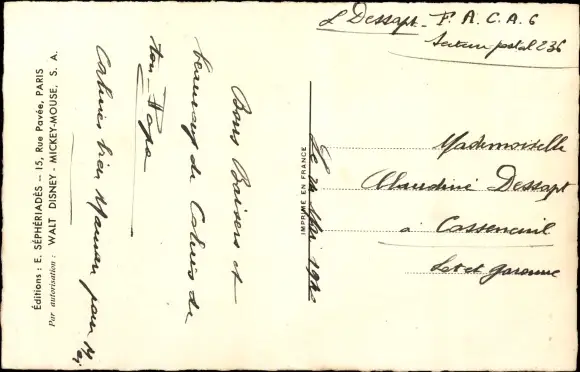 L Dessapt - F. A. C. A. 6
Secteur postal 236
Bons Baisers et
beaucoup de Calines de
ton Papa
Calines bien Maman pour Moi
Éditions : E. SÉPHÉRIADÈS — 15, Rue Pavée, PARIS
Par autorisation : WALT DISNEY - MICKEY-MOUSE, S. A.
IMPRIMÉ EN FRANCE
Mademoiselle
Claudine Dessapt
à Casseneuil
Lot et Garonne